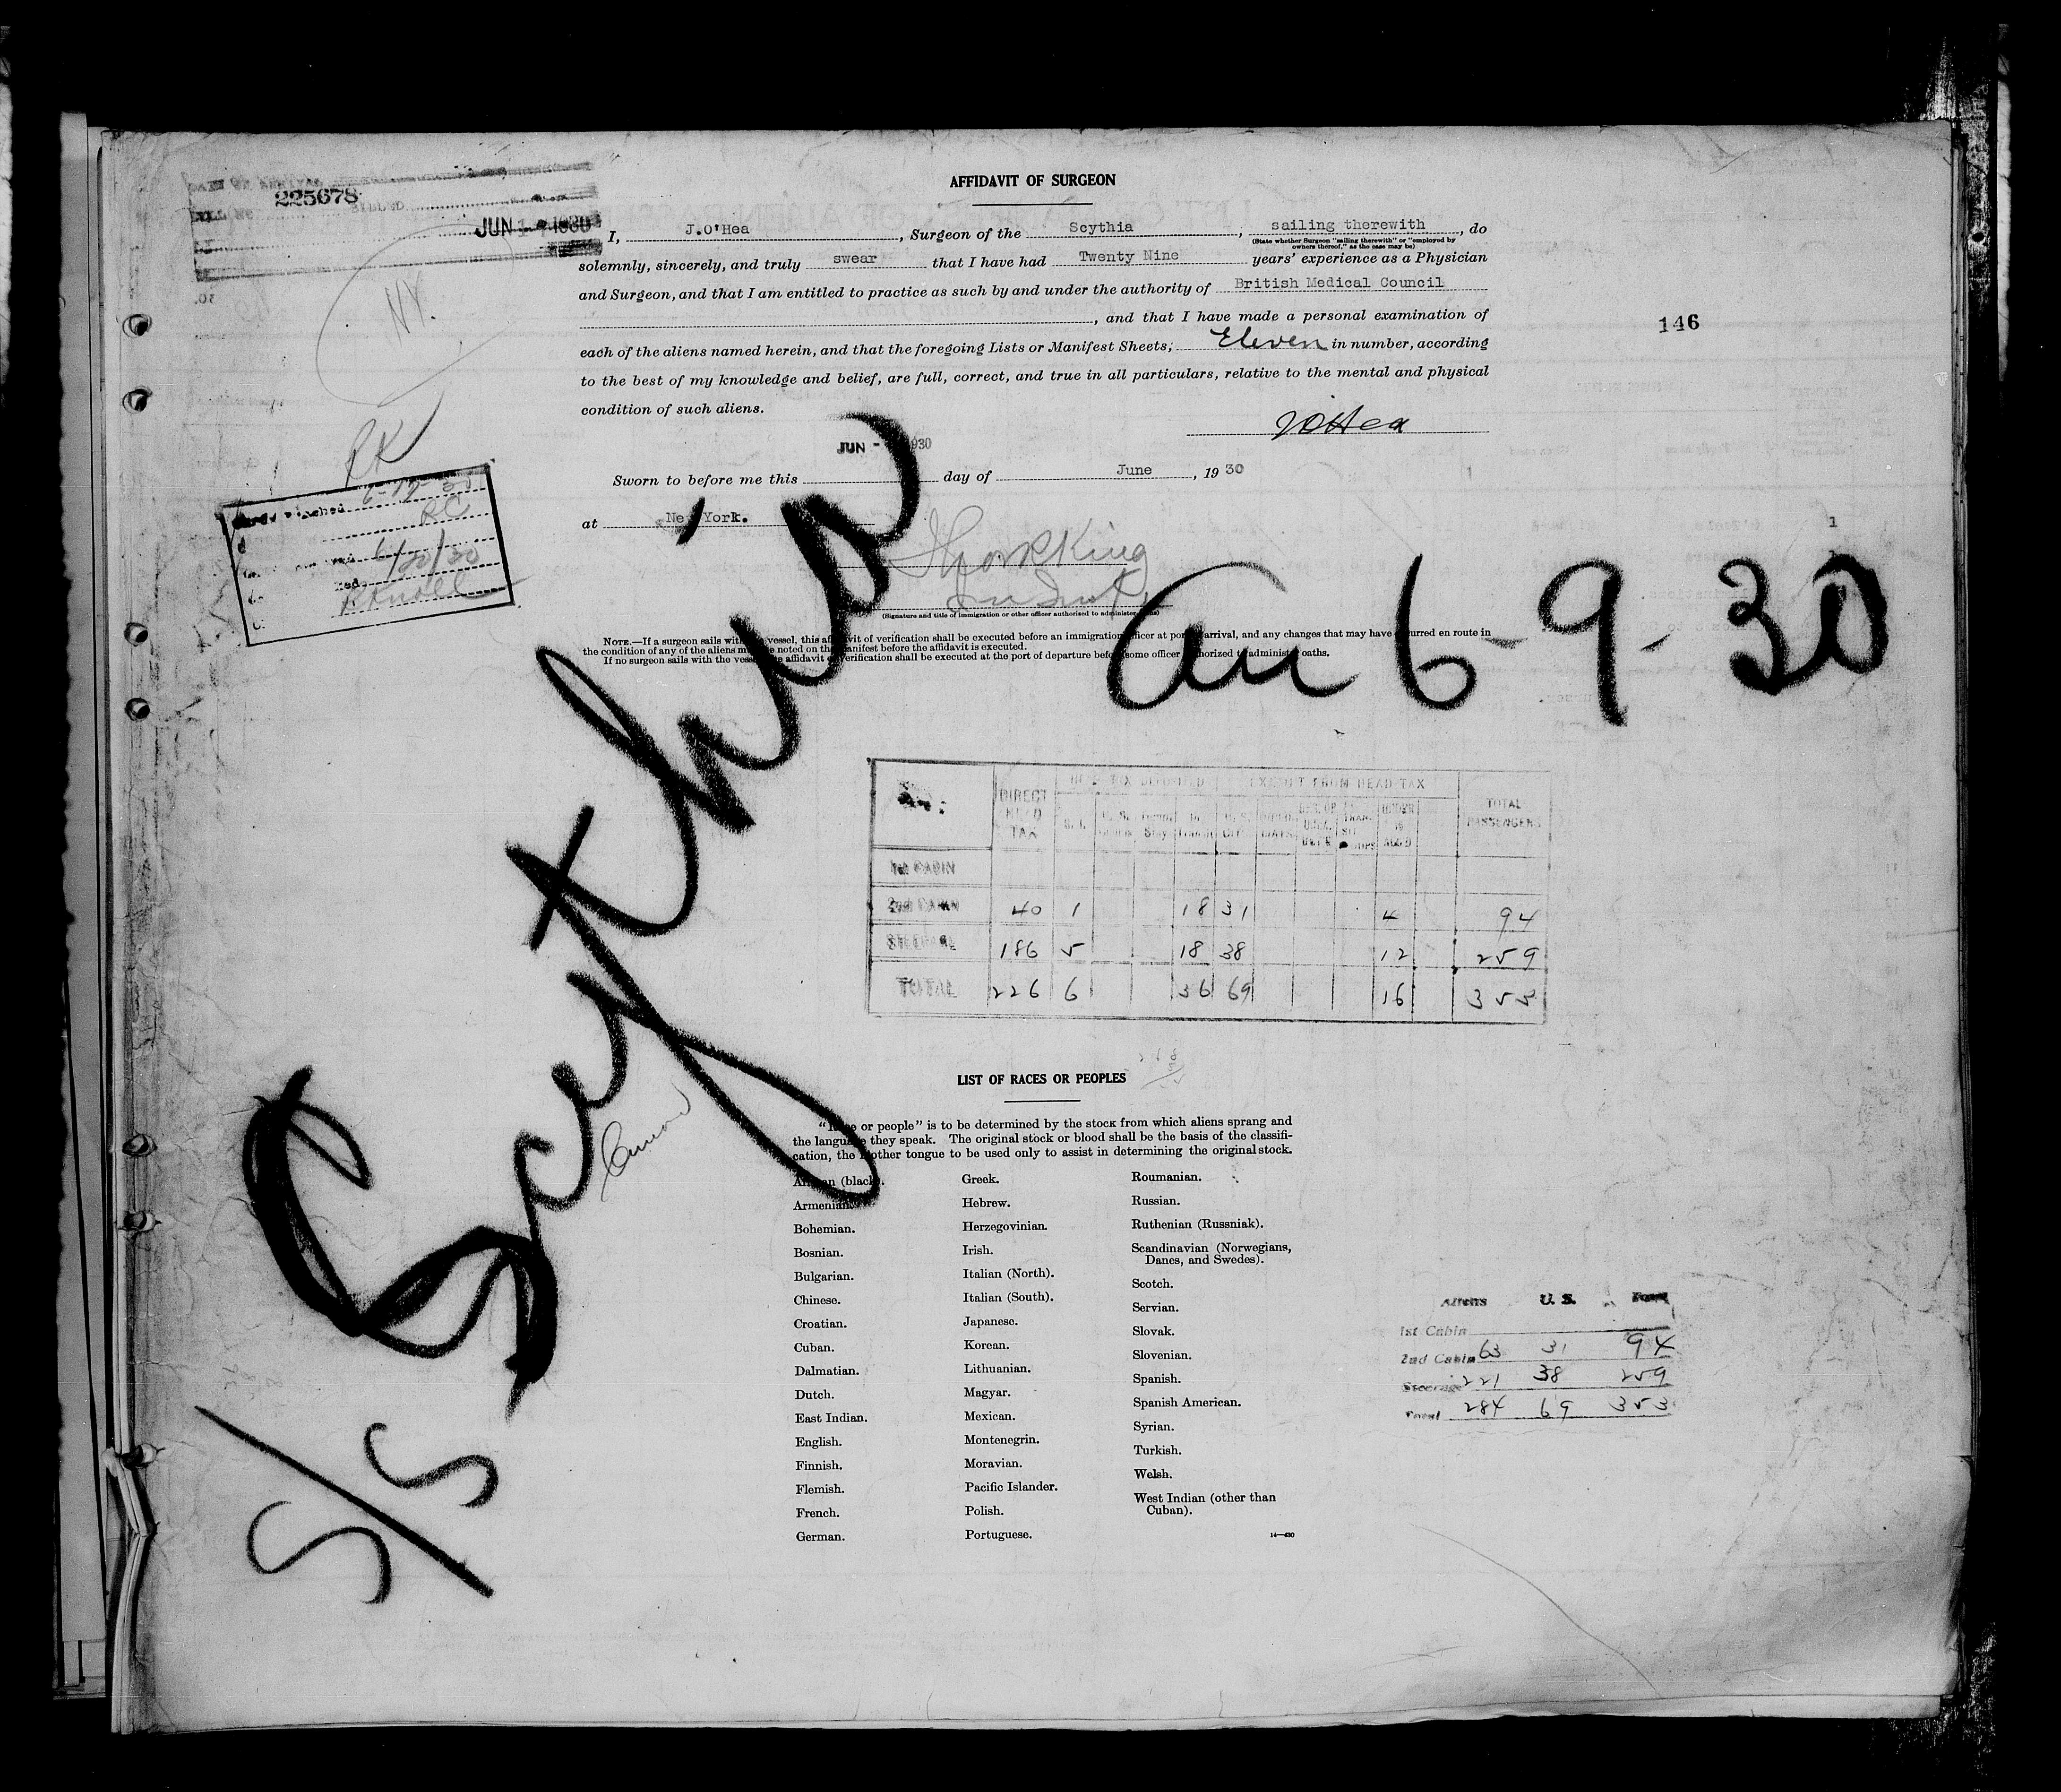 225678
BILLED
JUN 1 1930
NY.
RK
6-17-30
RC
6/20/30
AFFIDAVIT OF SURGEON
I, J.O'Hea, Surgeon of the Scythia, sailing therewith, do
(State whether Surgeon "sailing therewith" or "employed by
owners thereof," as the case may be)
solemnly, sincerely, and truly swear that I have had Twenty Nine years' experience as a Physician
and Surgeon, and that I am entitled to practice as such by and under the authority of British Medical Council
, and that I have made a personal examination of
146
each of the aliens named herein, and that the foregoing Lists or Manifest Sheets, Eleven in number, according
to the best of my knowledge and belief, are full, correct, and true in all particulars, relative to the mental and physical
condition of such aliens.
JOHea
JUN - 1930
Sworn to before me this day of June, 19 30
at New York.
(Signature and title of immigration or other officer authorized to administer oaths)
NOTE.—If a surgeon sails with the vessel, this affidavit of verification shall be executed before an immigration officer at port of arrival, and any changes that may have occurred en route in
the condition of any of the aliens must be noted on the manifest before the affidavit is executed.
If no surgeon sails with the vessel the affidavit of verification shall be executed at the port of departure before some officer authorized to administer oaths.
S/S Scythia
arr 6-9-30
DIRECT HEAD TAX
EXEMPT FROM HEAD TAX
TOTAL PASSENGERS
1st CABIN
2nd CABIN 40 1 18 31 4 94
STEERAGE 186 5 18 38 12 259
TOTAL 226 6 36 69 16 353
LIST OF RACES OR PEOPLES
"Race or people" is to be determined by the stock from which aliens sprang and
the language they speak. The original stock or blood shall be the basis of the classifi-
cation, the mother tongue to be used only to assist in determining the original stock.
African (black).
Armenian.
Bohemian.
Bosnian.
Bulgarian.
Chinese.
Croatian.
Cuban.
Dalmatian.
Dutch.
East Indian.
English.
Finnish.
Flemish.
French.
German.
Greek.
Hebrew.
Herzegovinian.
Irish.
Italian (North).
Italian (South).
Japanese.
Korean.
Lithuanian.
Magyar.
Mexican.
Montenegrin.
Moravian.
Pacific Islander.
Polish.
Portuguese.
Roumanian.
Russian.
Ruthenian (Russniak).
Scandinavian (Norwegians,
Danes, and Swedes).
Scotch.
Servian.
Slovak.
Slovenian.
Spanish.
Spanish American.
Syrian.
Turkish.
Welsh.
West Indian (other than
Cuban).
Aliens U. S. Total
1st Cabin
2nd Cabin 63 31 94
Steerage 221 38 259
Total 284 69 353